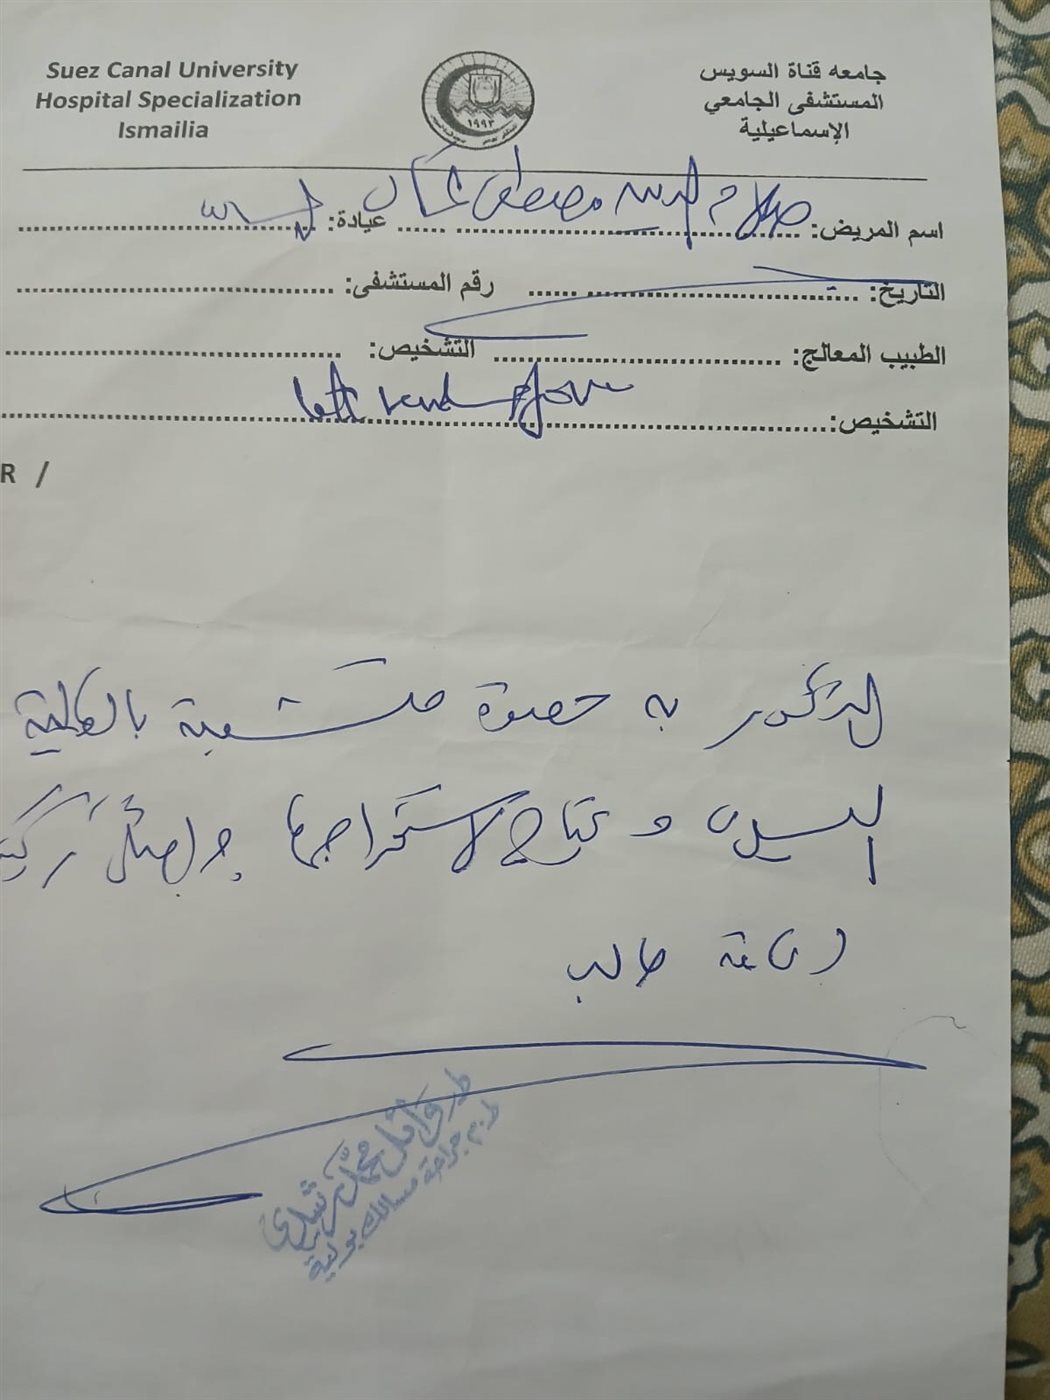 Suez Canal University
Hospital Specialization
Ismailia
جامعه قناة السويس
المستشفى الجامعي
الإسماعيلية
١٩٩٣
اسم المريض: صلاح السيد مصطفى عيادة:
التاريخ: رقم المستشفى:
الطبيب المعالج: التشخيص:
التشخيص: left renal stone
R /
المذكور به حصوة متشعبة بالكلية
اليسرى و يحتاج لاستخراجها
حالب
محمد رشدي
جراحة مسالك بولية